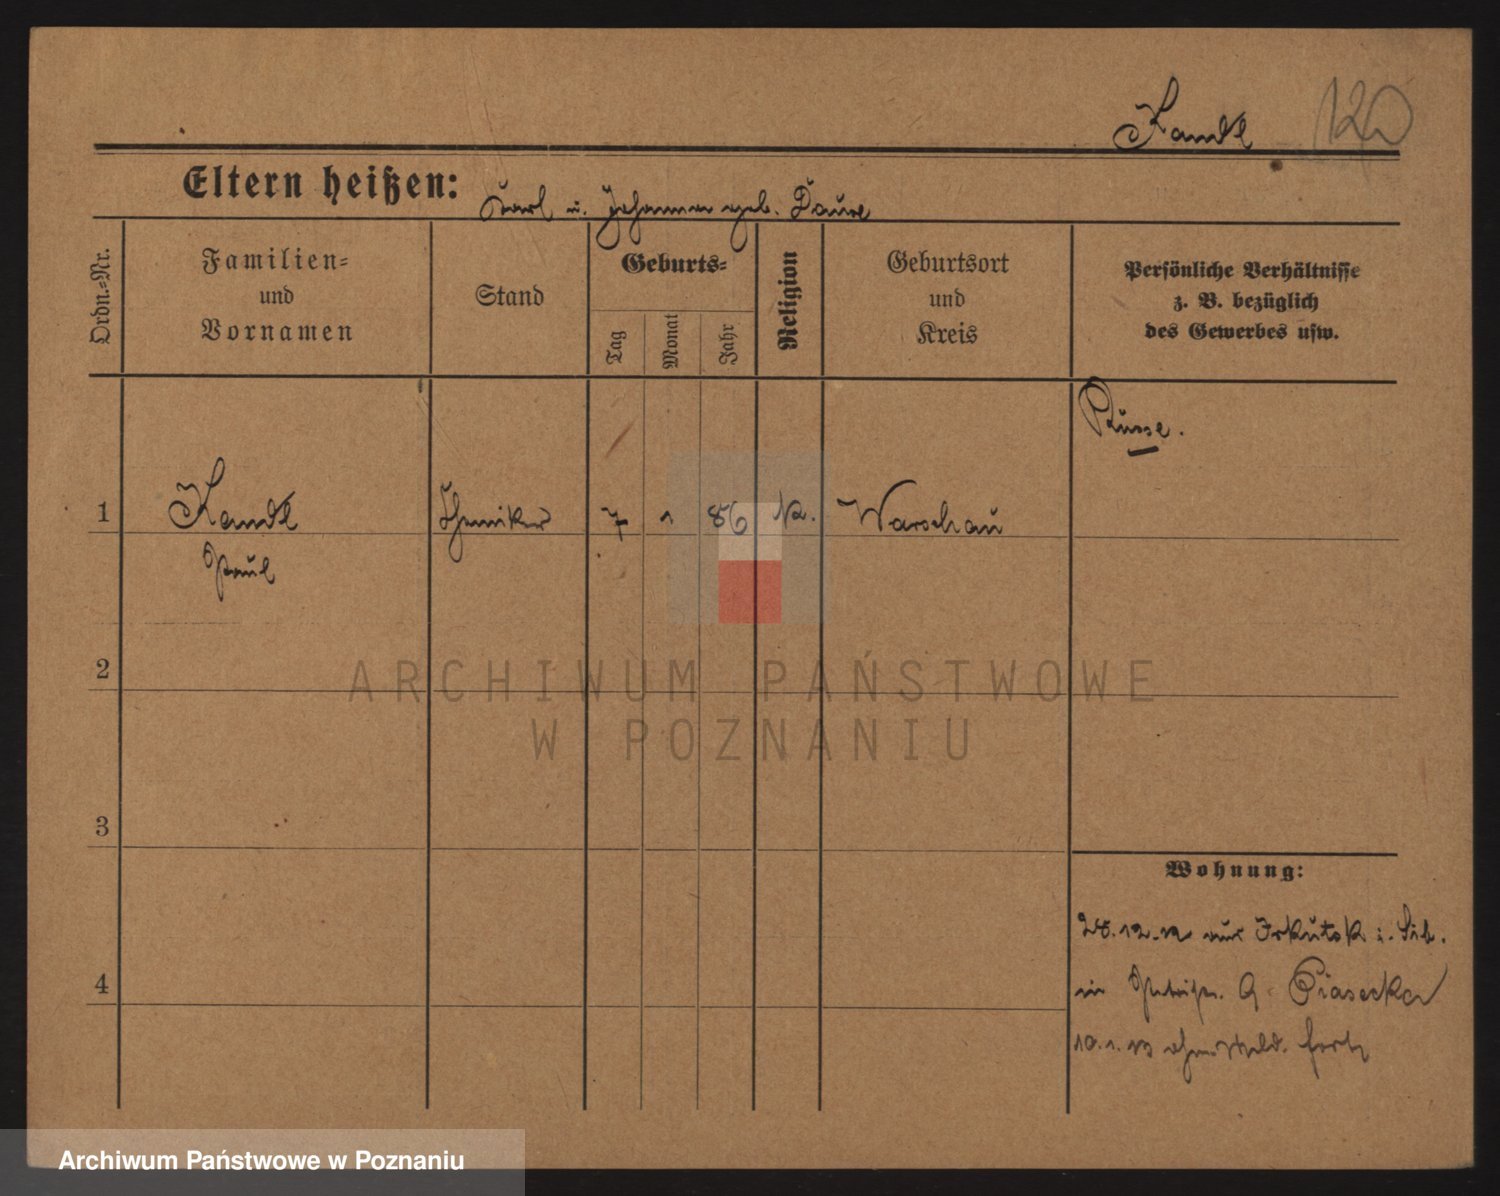 Kandt 120
Eltern heißen: Karl u. Johanna geb.
Ordn.-Nr.
Familien- und Vornamen
Stand
Geburts-
Tag
Monat
Jahr
Religion
Geburtsort und Kreis
Persönliche Verhältnisse
z. B. bezüglich
des Gewerbes usw.
Russe.
1 Kandt Chemiker 7 1 86 K. Warschau
Paul
2
3
4
Wohnung:
12. aus Irkutsk i. Sib.
in 9 Piasecka
10. 1. 13 ohne Meld. fort
ARCHIWUM PAŃSTWOWE
W POZNANIU
Archiwum Państwowe w Poznaniu